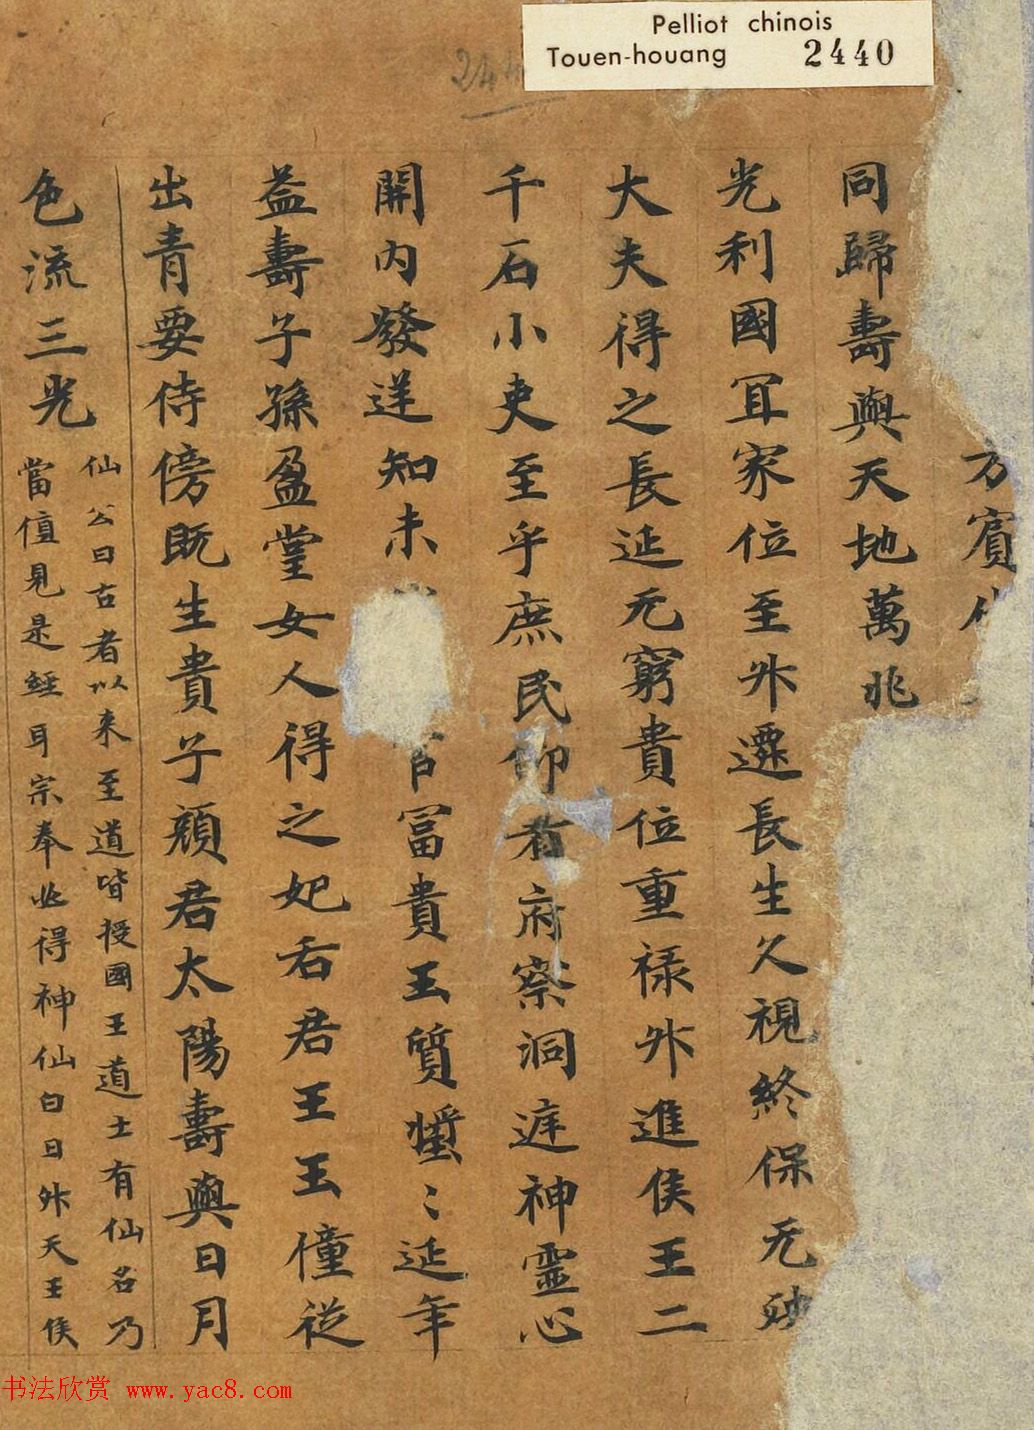 Pelliot chinois
Touen-houang 2440
244
万賓
同歸壽與天地萬兆
光利國冝家位至升遷長生久視終保无
大夫得之長延无窮貴位重禄升進侯王二
千石小吏至乎庶民仰看府察洞神靈心
開内發逆知未
冨貴玉質〻延年
益壽子孫盈堂女人得之妃后君王玉僮從
出青要侍傍既生貴子顏君太陽壽與日月
色流三光
仙公曰古者以来至道皆授國王道士有仙名乃
當值見是經耳宗奉此得神仙白日升天王侯
书法欣赏 www.yac8.com